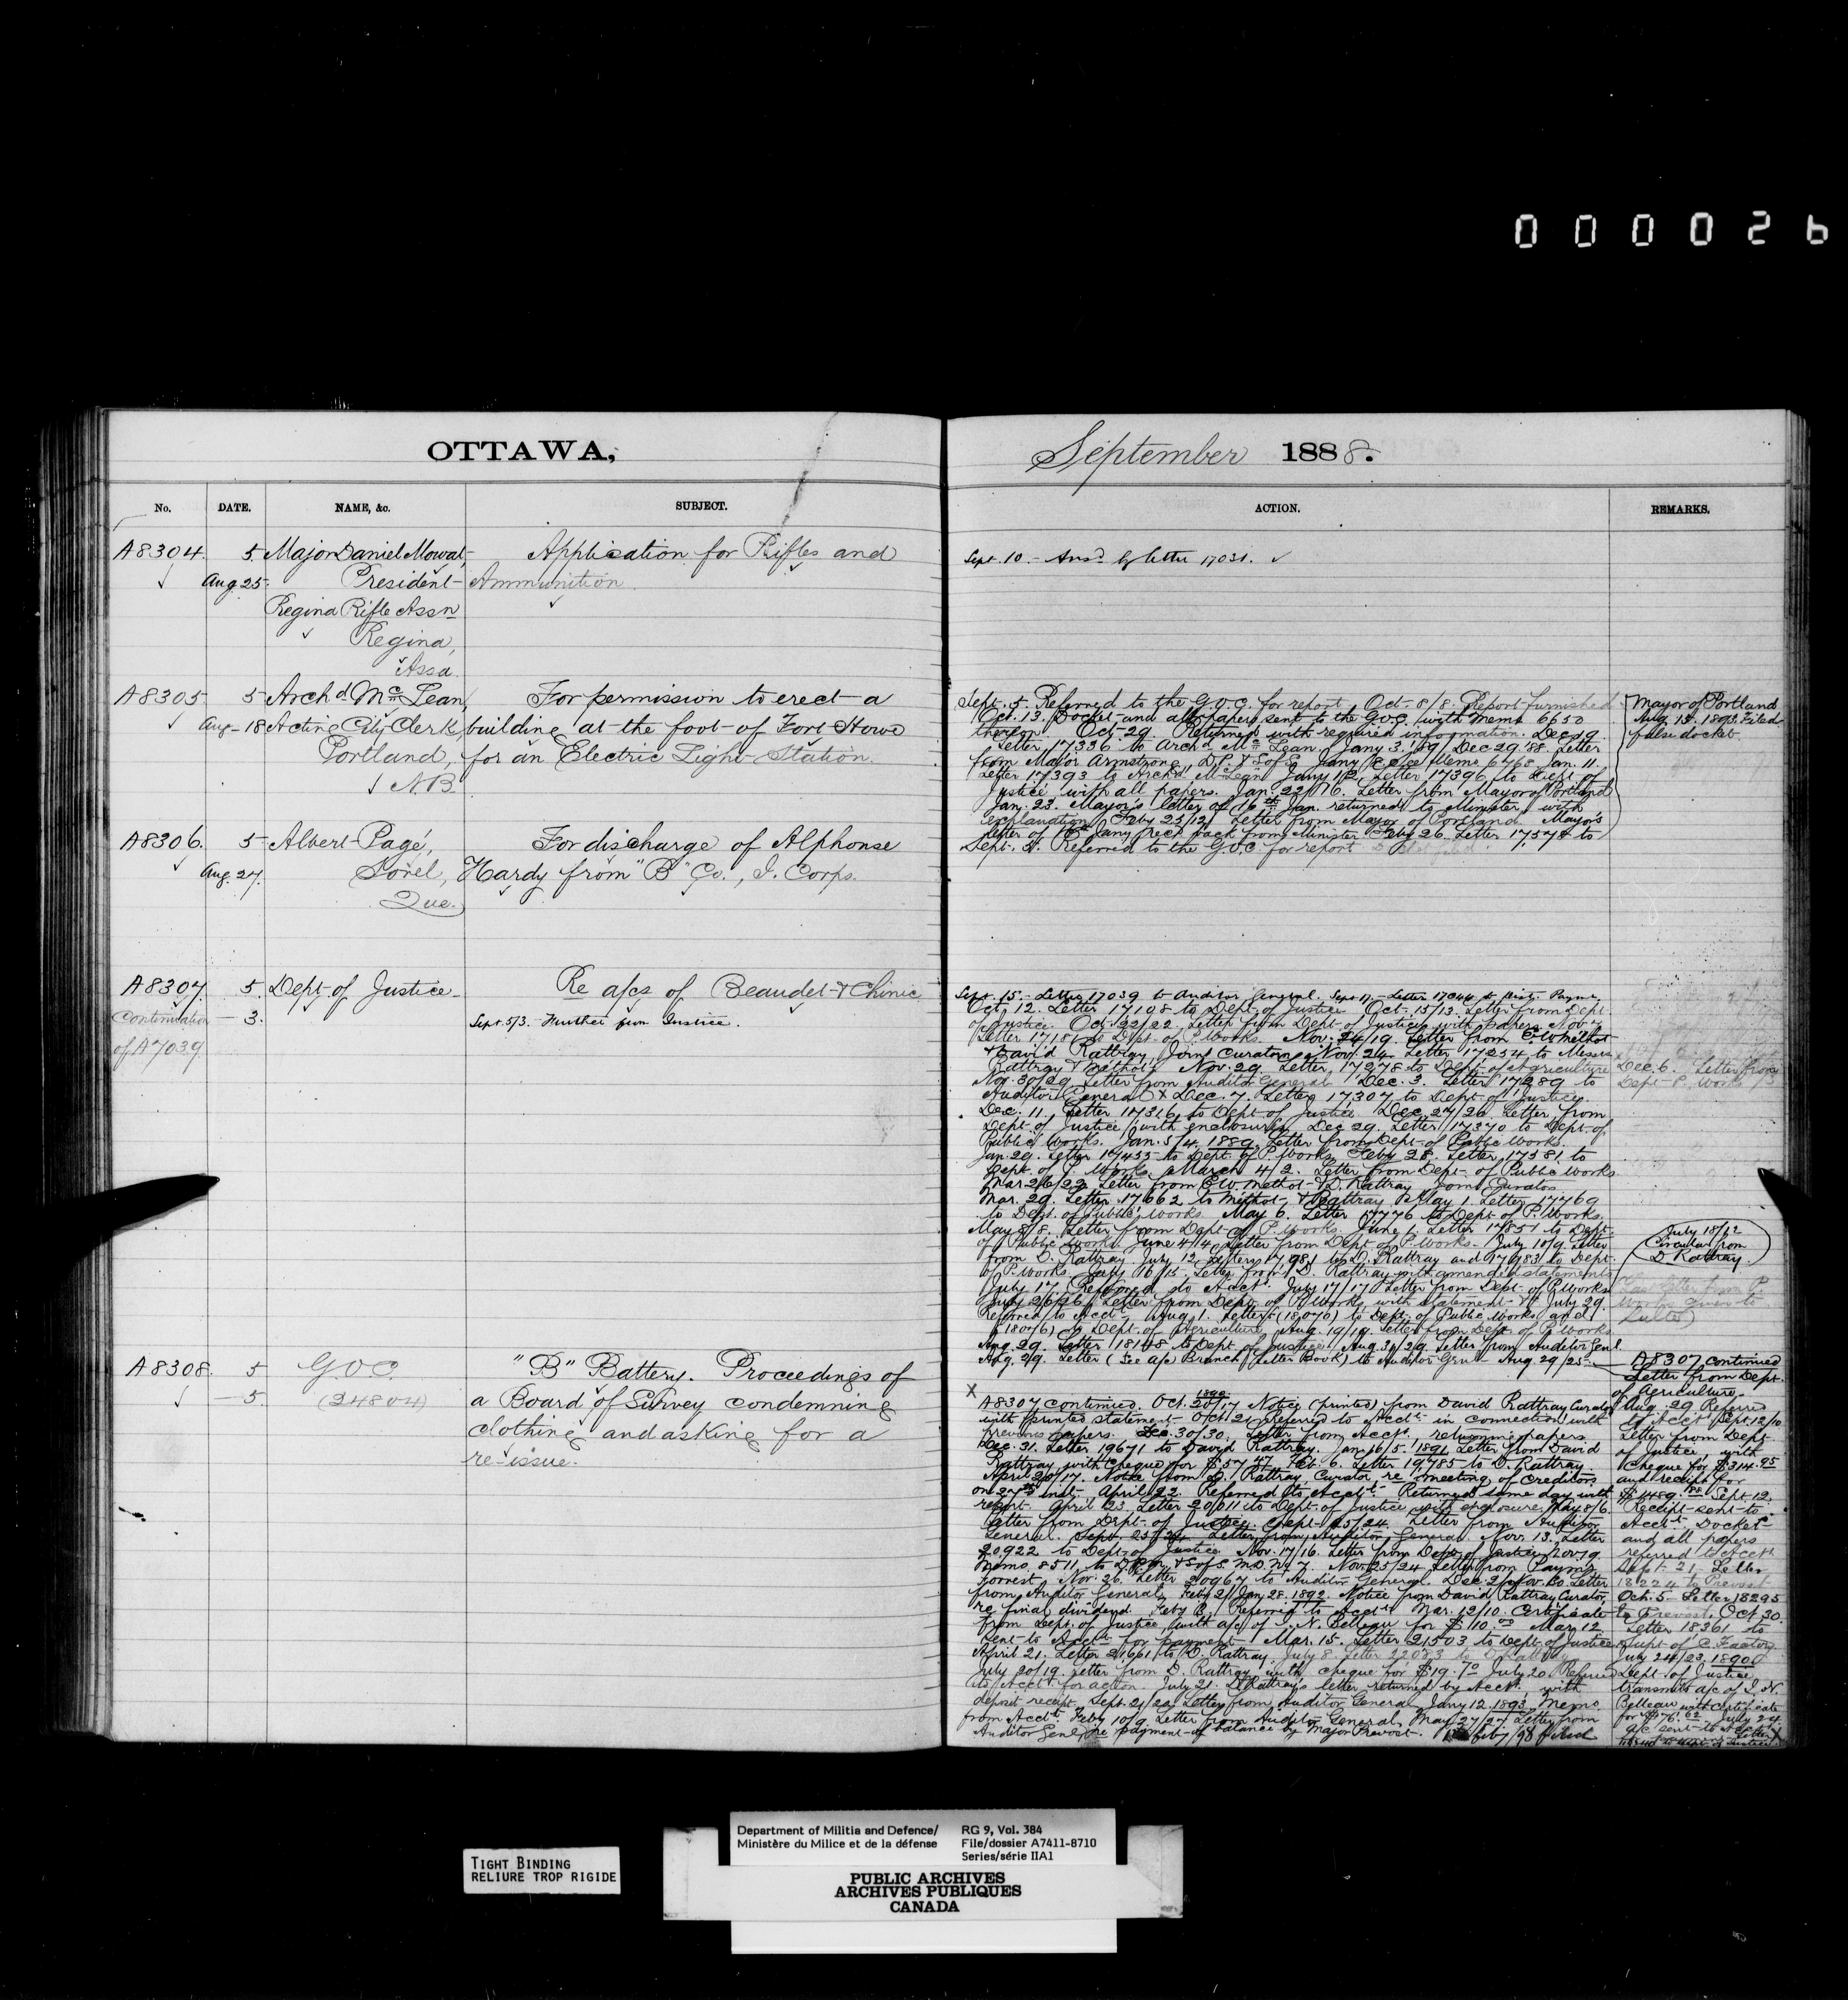 000026
OTTAWA,
No. DATE. NAME, &c. SUBJECT.
A8304. 5. Major Daniel Mowat, Application for Rifles and
Aug 25. President Ammunition.
Regina Rifle Assn
Regina,
Assa.
A8305 5 Archd McLean, For permission to erect a
Aug 18 Acting City Clerk, building at the foot of Fort Howe
Portland, for an Electric Light Station.
N.B.
A8306. 5 Albert Pagé, For discharge of Alphonse
Aug. 27. Sorel, Hardy from "B" Co., I. Corps.
Que.
A8307. 5. Dept of Justice Re a/cs of Beaudet & Chinic
Continuation 3. Sept. 5/3. Further from Justice.
of A7039
A8308. 5 G.O.C. "B" Battery. Proceedings of
5. (24804) a Board of Survey condemning
clothing and asking for a
re-issue.
September 1888.
ACTION. REMARKS.
Sept. 10. Ansd by letter 17031.
Sept. 5. Referred to the G.O.C. for report. Oct. 8/8 Report furnished
Oct. 13. Docket and all papers sent to the G.O.C. with memo 6650
thereon. Oct. 29. Returned with required information. Dec. 19.
Letter 17336 to Archd McLean. Jany 3. '89/Dec 29 '88. Letter
from Major Armstrong, D.P. & S. of S. Jany 8. See Memo 6768. Jan. 11.
Letter 17393 to Archd McLean. Jany 12. Letter 17396 to Dept of
Justice with all papers. Jan. 22/16. Letter from Mayor of Portland
Jan. 23. Mayor's letter of 16th Jan. returned to Minister with
explanation. Feby 25/12. Letter from Mayor of Portland. Mayor's
letter of Jany recd back from Minister. Feby 26. Letter 17574 to
Mayor of Portland
Aug. 15. 1893. Filed
false docket.
Referred to the G.O.C. for report
Sept. 15. Letter 17039 to Auditor General. Sept 17. Letter 17044 to Dist. Paymr.
Oct. 12. Letter 17108 to Dept. of Justice. Oct. 15/13. Letter from Dept.
of Justice. Oct. 22/22. Letter from Dept. of Justice with papers. Nov. 7
Letter 17181 to Dept. of P. Works. Nov. 24/19. Letter from C.W. Methot
& David Rattray, Joint Curators. Nov. 24. Letter 17254 to Messrs
Rattray & Methot. Nov. 29. Letter 17278 to Dept. of Agriculture
Nov. 30/29 Letter from Auditor General. Dec. 3. Letter 17289 to
Auditor General X Dec. 7. Letter 17307 to Dept. of Justice.
Dec. 11. Letter 17316 to Dept. of Justice. Dec. 27/26. Letter from
Dept. of Justice with enclosures. Dec 29. Letter 17370 to Dept. of
Public Works. Jan. 5/4. 1889. Letter from Dept. of Public Works.
Jan. 29. Letter 17455 to Dept. of P. Works. Feby 28. Letter 17581 to
Dept. of P. Works. March 4/2. Letter from Dept. of Public Works
Mar 26/22 Letter from C.W. Methot & D. Rattray Joint Curators
Mar. 29. Letter 17662 to Methot & Rattray. May 1. Letter 17769
to Dept. of Public Works. May 6. Letter 17776 to Dept of P. Works.
May 8/8. Letter from Dept of P. Works. June 1. Letter 17851 to Dept.
of Public Works. June 4/4. Letter from Dept. of P. Works. July 10/9. Letter
from D. Rattray. July 12. Letters 17981 to D. Rattray and 17983 to Dept.
of P. Works. July 16/15. Letter from D. Rattray with amended statements
July 17. Referred to Acct. July 17/17 Letter from Dept. of P. Works
July 26/26. Letter from Dept. of P. Works, with statement. July 29.
Referred to Acct. Aug. 1. Letters (18070) to Dept. of Public Works and
(18076) to Dept. of Agriculture. Aug. 19/19. Letter from Dept. of P. Works
Aug. 29. Letter 18148 to Dept. of Justice. Aug. 30/29. Letter from Auditor Genl.
Aug. 29. Letter (See a/c Branch Letter Book) to Auditor Genl. Aug. 29/25
Dec. 6. Letter from
Dept. P. Works
July 18/12
Circular from
D. Rattray.
X A8307 continued. Oct. 20/17 1890 Notice (printed) from David Rattray Curator
with printed statement. Oct. 21 referred to Acct. in connection with
previous papers. Dec. 30/30. Letter from Acct. returning papers.
Dec. 31. Letter 19671 to David Rattray. Jan. 6/5. 1891. Letter from David
Rattray with cheque for $57.47. Feb. 6. Letter 19785 to D. Rattray.
April 20/17. Notice from D. Rattray, Curator, re meeting of creditors
on 27th inst. April 22. Referred to Acct. Returned same day with
report. April 23. Letter 20011 to Dept. of Justice with enclosure. May 8/6
Letter from Dept. of Justice. Sept. 25/24. Letter from Auditor
General. Nov. 13. Letter
20922 to Dept. of Justice. Nov. 17/16. Letter from Dept. of Justice. Nov. 19.
Memo 8511 to Nov. 25/24 Letter from Paymr.
Forrest. Nov. 26. Letter 20967 to Auditor General. Letter
from Auditor General. Feby 2/Jan 28. 1892. Notice from David Rattray Curator,
re final dividend. Referred to Acct. Mar. 12/10. Certificate
from Dept. of Justice, with a/c of J.N. Belleau for $10.00 Mar. 12
Sent to Acct. for payment. Mar. 15. Letter 21503 to Dept. of Justice
April 21. Letter 21661 to D. Rattray. July 8. Letter 22083 to D. Rattray
July 20/19. Letter from D. Rattray with cheque for $19. July 20 Referred
to Acct. for action. July 21. D. Rattray's letter returned by Acct. with
deposit receipt. Sept. 21/20. Letter from Auditor General. Jany 12. 1893. Memo
from Acct. Feby 10/9. Letter from Auditor General. May 27/27 Letter from
Auditor Genl re payment of balance by Major Prevost. filed
A8307 continued
Letter from Dept.
of Agriculture
Aug. 29 Referred
to Acct. Sept. 12/10
Letter from Dept.
of Justice, with
cheque for $314.95
and receipt for
$1489.88. Sept. 12.
Receipt sent to
Acct. Docket
and all papers
referred to Acct.
Sept. 21. Letter
18224 to Prevost
Oct. 5. Letter 18295
to Prevost. Oct. 30.
Letter 18361 to
Supt of C. Factory
July 24/23, 1890
Dept. of Justice
transmits a/c of J.N.
Belleau with certificate
for July 24
a/c sent to Acct.
TIGHT BINDING
RELIURE TROP RIGIDE
Department of Militia and Defence/ RG 9, Vol. 384
Ministère du Milice et de la défense File/dossier A7411-8710
Series/série IIA1
PUBLIC ARCHIVES
ARCHIVES PUBLIQUES
CANADA